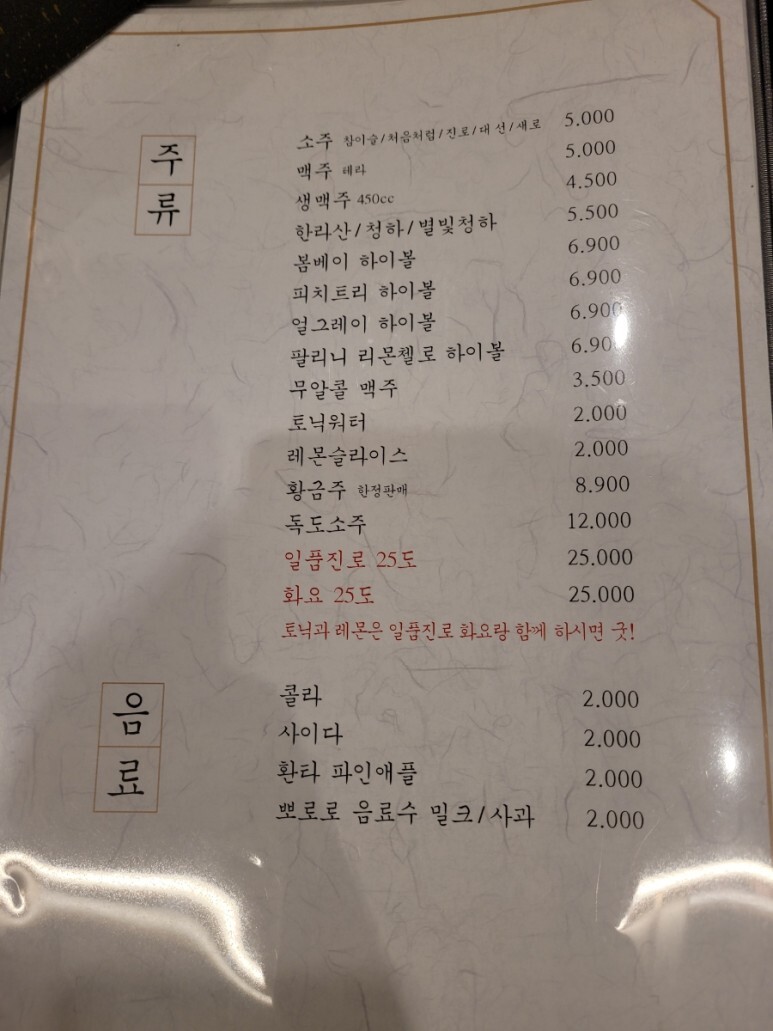 주류
소주 참이슬/처음처럼/진로/대선/새로 5.000
맥주 테라 5.000
생맥주 450cc 4.500
한라산/청하/별빛청하 5.500
봄베이 하이볼 6.900
피치트리 하이볼 6.900
얼그레이 하이볼 6.900
팔리니 리몬첼로 하이볼 6.900
무알콜 맥주 3.500
토닉워터 2.000
레몬슬라이스 2.000
황금주 한정판매 8.900
독도소주 12.000
일품진로 25도 25.000
화요 25도 25.000
토닉과 레몬은 일품진로 화요랑 함께 하시면 굿!
음료
콜라 2.000
사이다 2.000
환타 파인애플 2.000
뽀로로 음료수 밀크/사과 2.000